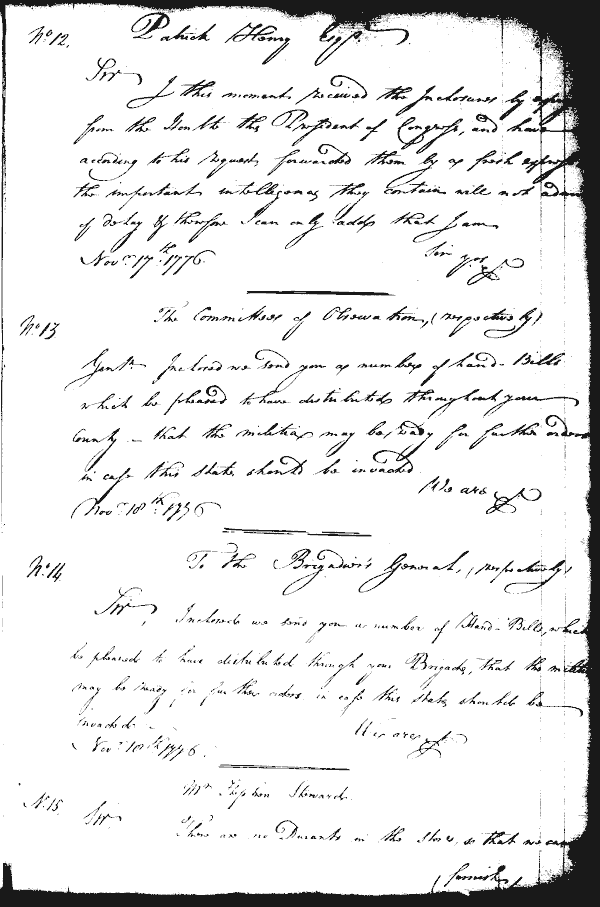 No. 12. Patrick Henry Esqr.
Sir
I this moment received the Inclosures by
from the Honble the President of Congress, and have
according to his request forwarded them by a fresh express
the important intelligence they contain will not
of delay & therefore I can only add that I am
Novr. 17th. 1776. Sir yor. &
No 13 The Committees of Observation, (respectively)
Gentn. Inclosed we send you a number of hand-Bills
which be pleased to have distributed throughout your
County — that the militia may be ready for further orders
in case this State should be invaded.
We are &
Novr. 18th. 1776
No. 14 To the Brigadier's General, (respectively)
Sir, Inclosed we send you a number of Hand-Bills, which
be pleased to have distributed through your Brigade, that the militia
may be ready for further orders in case this State should be
invaded —
We are &
Novr. 18th 1776.
No. 15. Mr. Stephen Steward
Sir There are no Durants in the Store, so that we
furnish